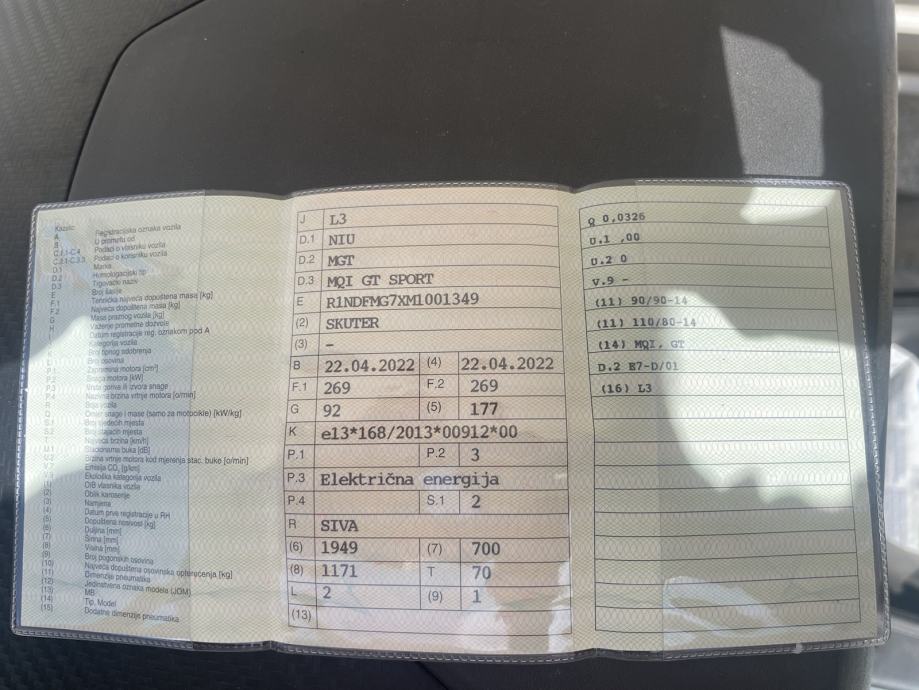 Kazalo:
A Registracijska oznaka vozila
B U prometu od
C.1.1-C.4 Podaci o vlasniku vozila
C.3.1-C.3.3 Podaci o korisniku vozila
D.1 Marka
D.2 Homologacijski tip
D.3 Trgovački naziv
E Broj šasije
F.1 Tehnička najveća dopuštena masa [kg]
F.2 Najveća dopuštena masa [kg]
G Masa praznog vozila [kg]
H Važenje prometne dozvole
Datum registracije reg. oznakom pod A
Kategorija vozila
Broj tipnog odobrenja
Broj osovina
P.1 Zapremina motora [cm³]
P.2 Snaga motora [kW]
P.3 Vrsta goriva ili izvora snage
P.4 Nazivna brzina vrtnje motora [o/min]
R Boja vozila
Q Omjer snage i mase (samo za motocikle) [kW/kg]
S.1 Broj sjedećih mjesta
S.2 Broj stajaćih mjesta
T Najveća brzina [km/h]
U.1 Stacionarna buka [dB]
U.2 Brzina vrtnje motora kod mjerenja stac. buke [o/min]
V.7 Emisija CO₂ [g/km]
V.9 Ekološka kategorija vozila
(1) OIB vlasnika vozila
(2) Oblik karoserije
(3) Namjena
(4) Datum prve registracije u RH
(5) Dopuštena nosivost [kg]
(6) Duljina [mm]
(7) Širina [mm]
(8) Visina [mm]
(9) Broj pogonskih osovina
(10) Najveća dopuštena osovinska opterećenja [kg]
(11) Dimenzije pneumatika
(12) Jedinstvena oznaka modela (JOM)
(13) MB
(14) Tip, Model
(15) Dodatne dimenzije pneumatika
J L3
D.1 NIU
D.2 MGT
D.3 MQI GT SPORT
E R1NDFMG7XM1001349
(2) SKUTER
(3) –
B 22.04.2022 (4) 22.04.2022
F.1 269 F.2 269
G 92 (5) 177
K e13*168/2013*00912*00
P.1 P.2 3
P.3 Električna energija
P.4 S.1 2
R SIVA
(6) 1949 (7) 700
(8) 1171 T 70
L 2 (9) 1
(13)
Q 0,0326
U.1 ,00
U.2 0
V.9 -
(11) 90/90-14
(11) 110/80-14
(14) MQI, GT
D.2 B7-D/01
(16) L3